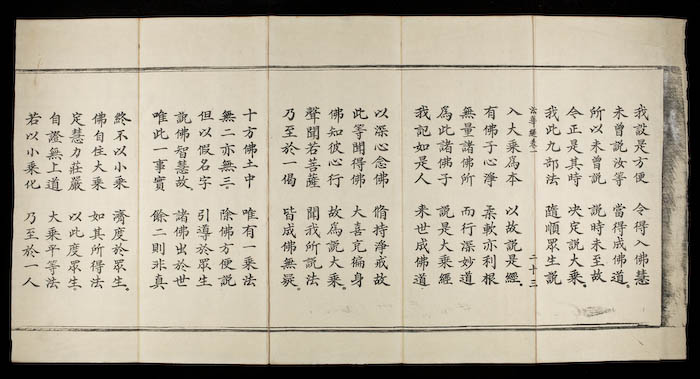 我設是方便　令得入佛慧
未曾說汝等　當得成佛道。
所以未曾說　說時未至故
今正是其時　决定說大乘。
我此九部法　隨順眾生說
法華經卷一　二十三
入大乘爲本　以故說是經。
有佛子心淨　柔軟亦利根
無量諸佛所　而行深妙道
爲此諸佛子　說是大乘經
我記如是人　來世成佛道。
以深心念佛　脩持淨戒故
此等聞得佛　大喜充徧身
佛知彼心行　故爲說大乘。
聲聞若菩薩　聞我所說法
乃至於一偈　皆成佛無疑。
十方佛土中　唯有一乘法
無二亦無三　除佛方便說
但以假名字　引導於眾生
說佛智慧故　諸佛出於世
唯此一事實　餘二則非真
終不以小乘　濟度於眾生。
佛自住大乘　如其所得法
定慧力莊嚴　以此度眾生。
自證無上道　大乘平等法
若以小乘化　乃至於一人